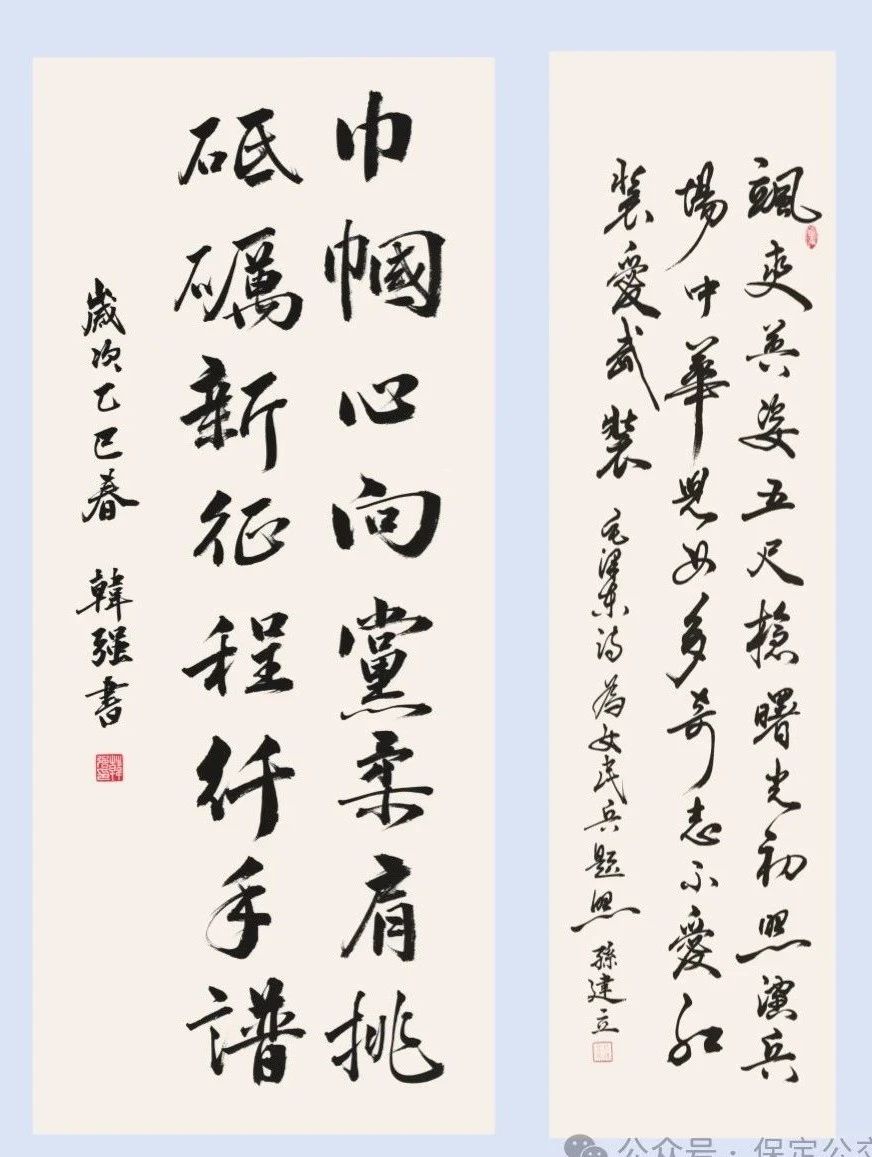 巾幗心向黨柔肩挑
砥礪新征程纤手譜
歲次乙巳春 韓强書
颯爽英姿五尺槍曙光初照演兵
場中華兒女多奇志不愛紅
裝愛武裝 毛澤東詩為女民兵題照 孫建立
公众号 · 保定公交